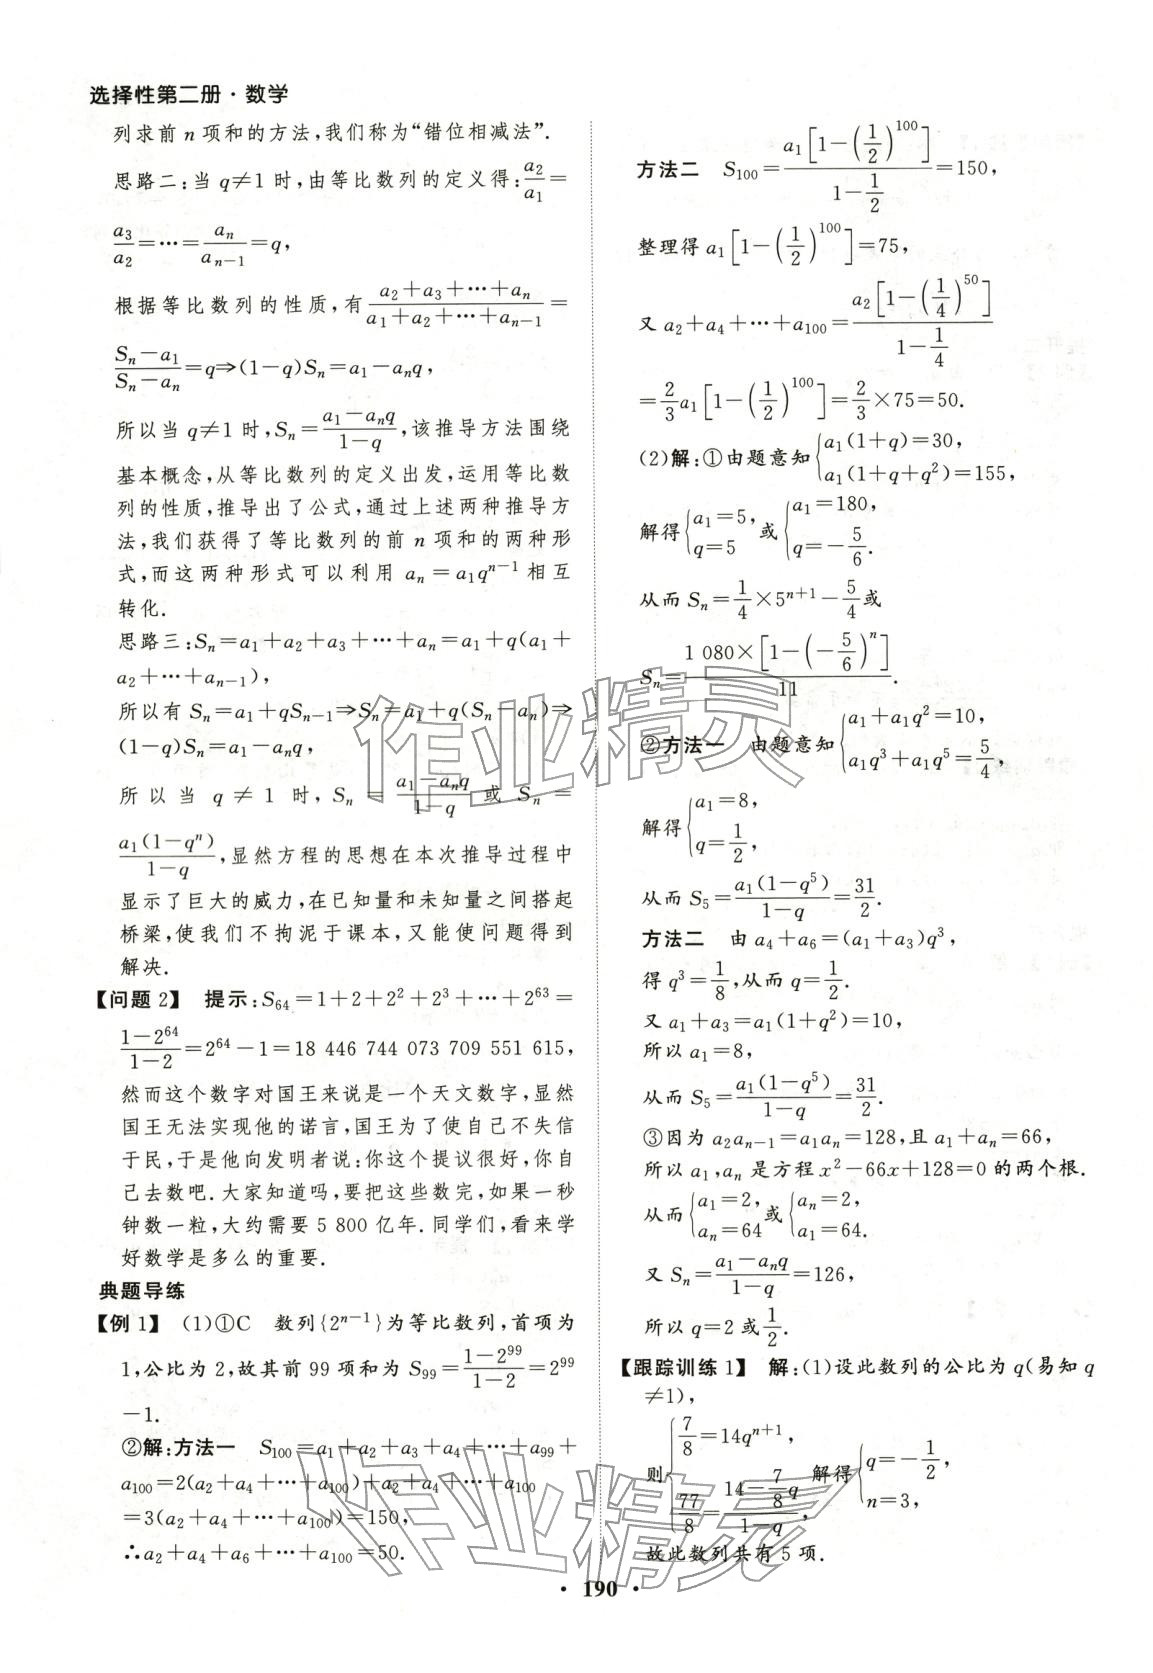 选择性第二册·数学
列求前 n 项和的方法,我们称为“错位相减法”.
思路二:当 q≠1 时,由等比数列的定义得:a₂/a₁=
a₃/a₂=⋯=aₙ/aₙ₋₁=q,
根据等比数列的性质,有(a₂+a₃+⋯+aₙ)/(a₁+a₂+⋯+aₙ₋₁)=
(Sₙ-a₁)/(Sₙ-aₙ)=q⇒(1-q)Sₙ=a₁-aₙq,
所以当 q≠1 时,Sₙ=(a₁-aₙq)/(1-q),该推导方法围绕
基本概念,从等比数列的定义出发,运用等比数
列的性质,推导出了公式,通过上述两种推导方
法,我们获得了等比数列的前 n 项和的两种形
式,而这两种形式可以利用 aₙ=a₁qⁿ⁻¹ 相互
转化.
思路三:Sₙ=a₁+a₂+a₃+⋯+aₙ=a₁+q(a₁+
a₂+⋯+aₙ₋₁),
所以有 Sₙ=a₁+qSₙ₋₁⇒Sₙ=a₁+q(Sₙ-aₙ)⇒
(1-q)Sₙ=a₁-aₙq,
所以当 q≠1 时,Sₙ=(a₁-aₙq)/(1-q)或 Sₙ=
a₁(1-qⁿ)/(1-q),显然方程的思想在本次推导过程中
显示了巨大的威力,在已知量和未知量之间搭起
桥梁,使我们不拘泥于课本,又能使问题得到
解决.
【问题 2】 提示:S₆₄=1+2+2²+2³+⋯+2⁶³=
(1-2⁶⁴)/(1-2)=2⁶⁴-1=18 446 744 073 709 551 615,
然而这个数字对国王来说是一个天文数字,显然
国王无法实现他的诺言,国王为了使自己不失信
于民,于是他向发明者说:你这个提议很好,你自
己去数吧.大家知道吗,要把这些数完,如果一秒
钟数一粒,大约需要 5 800 亿年.同学们,看来学
好数学是多么的重要.
典题导练
【例 1】 (1)①C 数列{2ⁿ⁻¹}为等比数列,首项为
1,公比为 2,故其前 99 项和为 S₉₉=(1-2⁹⁹)/(1-2)=2⁹⁹
-1.
②解:方法一 S₁₀₀=a₁+a₂+a₃+a₄+⋯+a₉₉+
a₁₀₀=2(a₂+a₄+⋯+a₁₀₀)+a₂+a₄+⋯+a₁₀₀
=3(a₂+a₄+⋯+a₁₀₀)=150,
∴a₂+a₄+a₆+⋯+a₁₀₀=50.
方法二 S₁₀₀=a₁[1-(1/2)¹⁰⁰]/(1-1/2)=150,
整理得 a₁[1-(1/2)¹⁰⁰]=75,
又 a₂+a₄+⋯+a₁₀₀=a₂[1-(1/4)⁵⁰]/(1-1/4)
=2/3a₁[1-(1/2)¹⁰⁰]=2/3×75=50.
(2)解:①由题意知{a₁(1+q)=30, a₁(1+q+q²)=155,
解得{a₁=5, q=5 或{a₁=180, q=-5/6.
从而 Sₙ=1/4×5ⁿ⁺¹-5/4或
Sₙ=1 080×[1-(-5/6)ⁿ]/11.
②方法一 由题意知{a₁+a₁q²=10, a₁q³+a₁q⁵=5/4,
解得{a₁=8, q=1/2,
从而 S₅=a₁(1-q⁵)/(1-q)=31/2.
方法二 由 a₄+a₆=(a₁+a₃)q³,
得 q³=1/8,从而 q=1/2.
又 a₁+a₃=a₁(1+q²)=10,
所以 a₁=8,
从而 S₅=a₁(1-q⁵)/(1-q)=31/2.
③因为 a₂aₙ₋₁=a₁aₙ=128,且 a₁+aₙ=66,
所以 a₁,aₙ 是方程 x²-66x+128=0 的两个根.
从而{a₁=2, aₙ=64 或{aₙ=2, a₁=64.
又 Sₙ=(a₁-aₙq)/(1-q)=126,
所以 q=2 或1/2.
【跟踪训练 1】 解:(1)设此数列的公比为 q(易知 q
≠1),
则{7/8=14qⁿ⁺¹, 77/8=(14-7/8q)/(1-q), 解得{q=-1/2, n=3,
故此数列共有 5 项.
· 190 ·
作业精灵
作业精灵